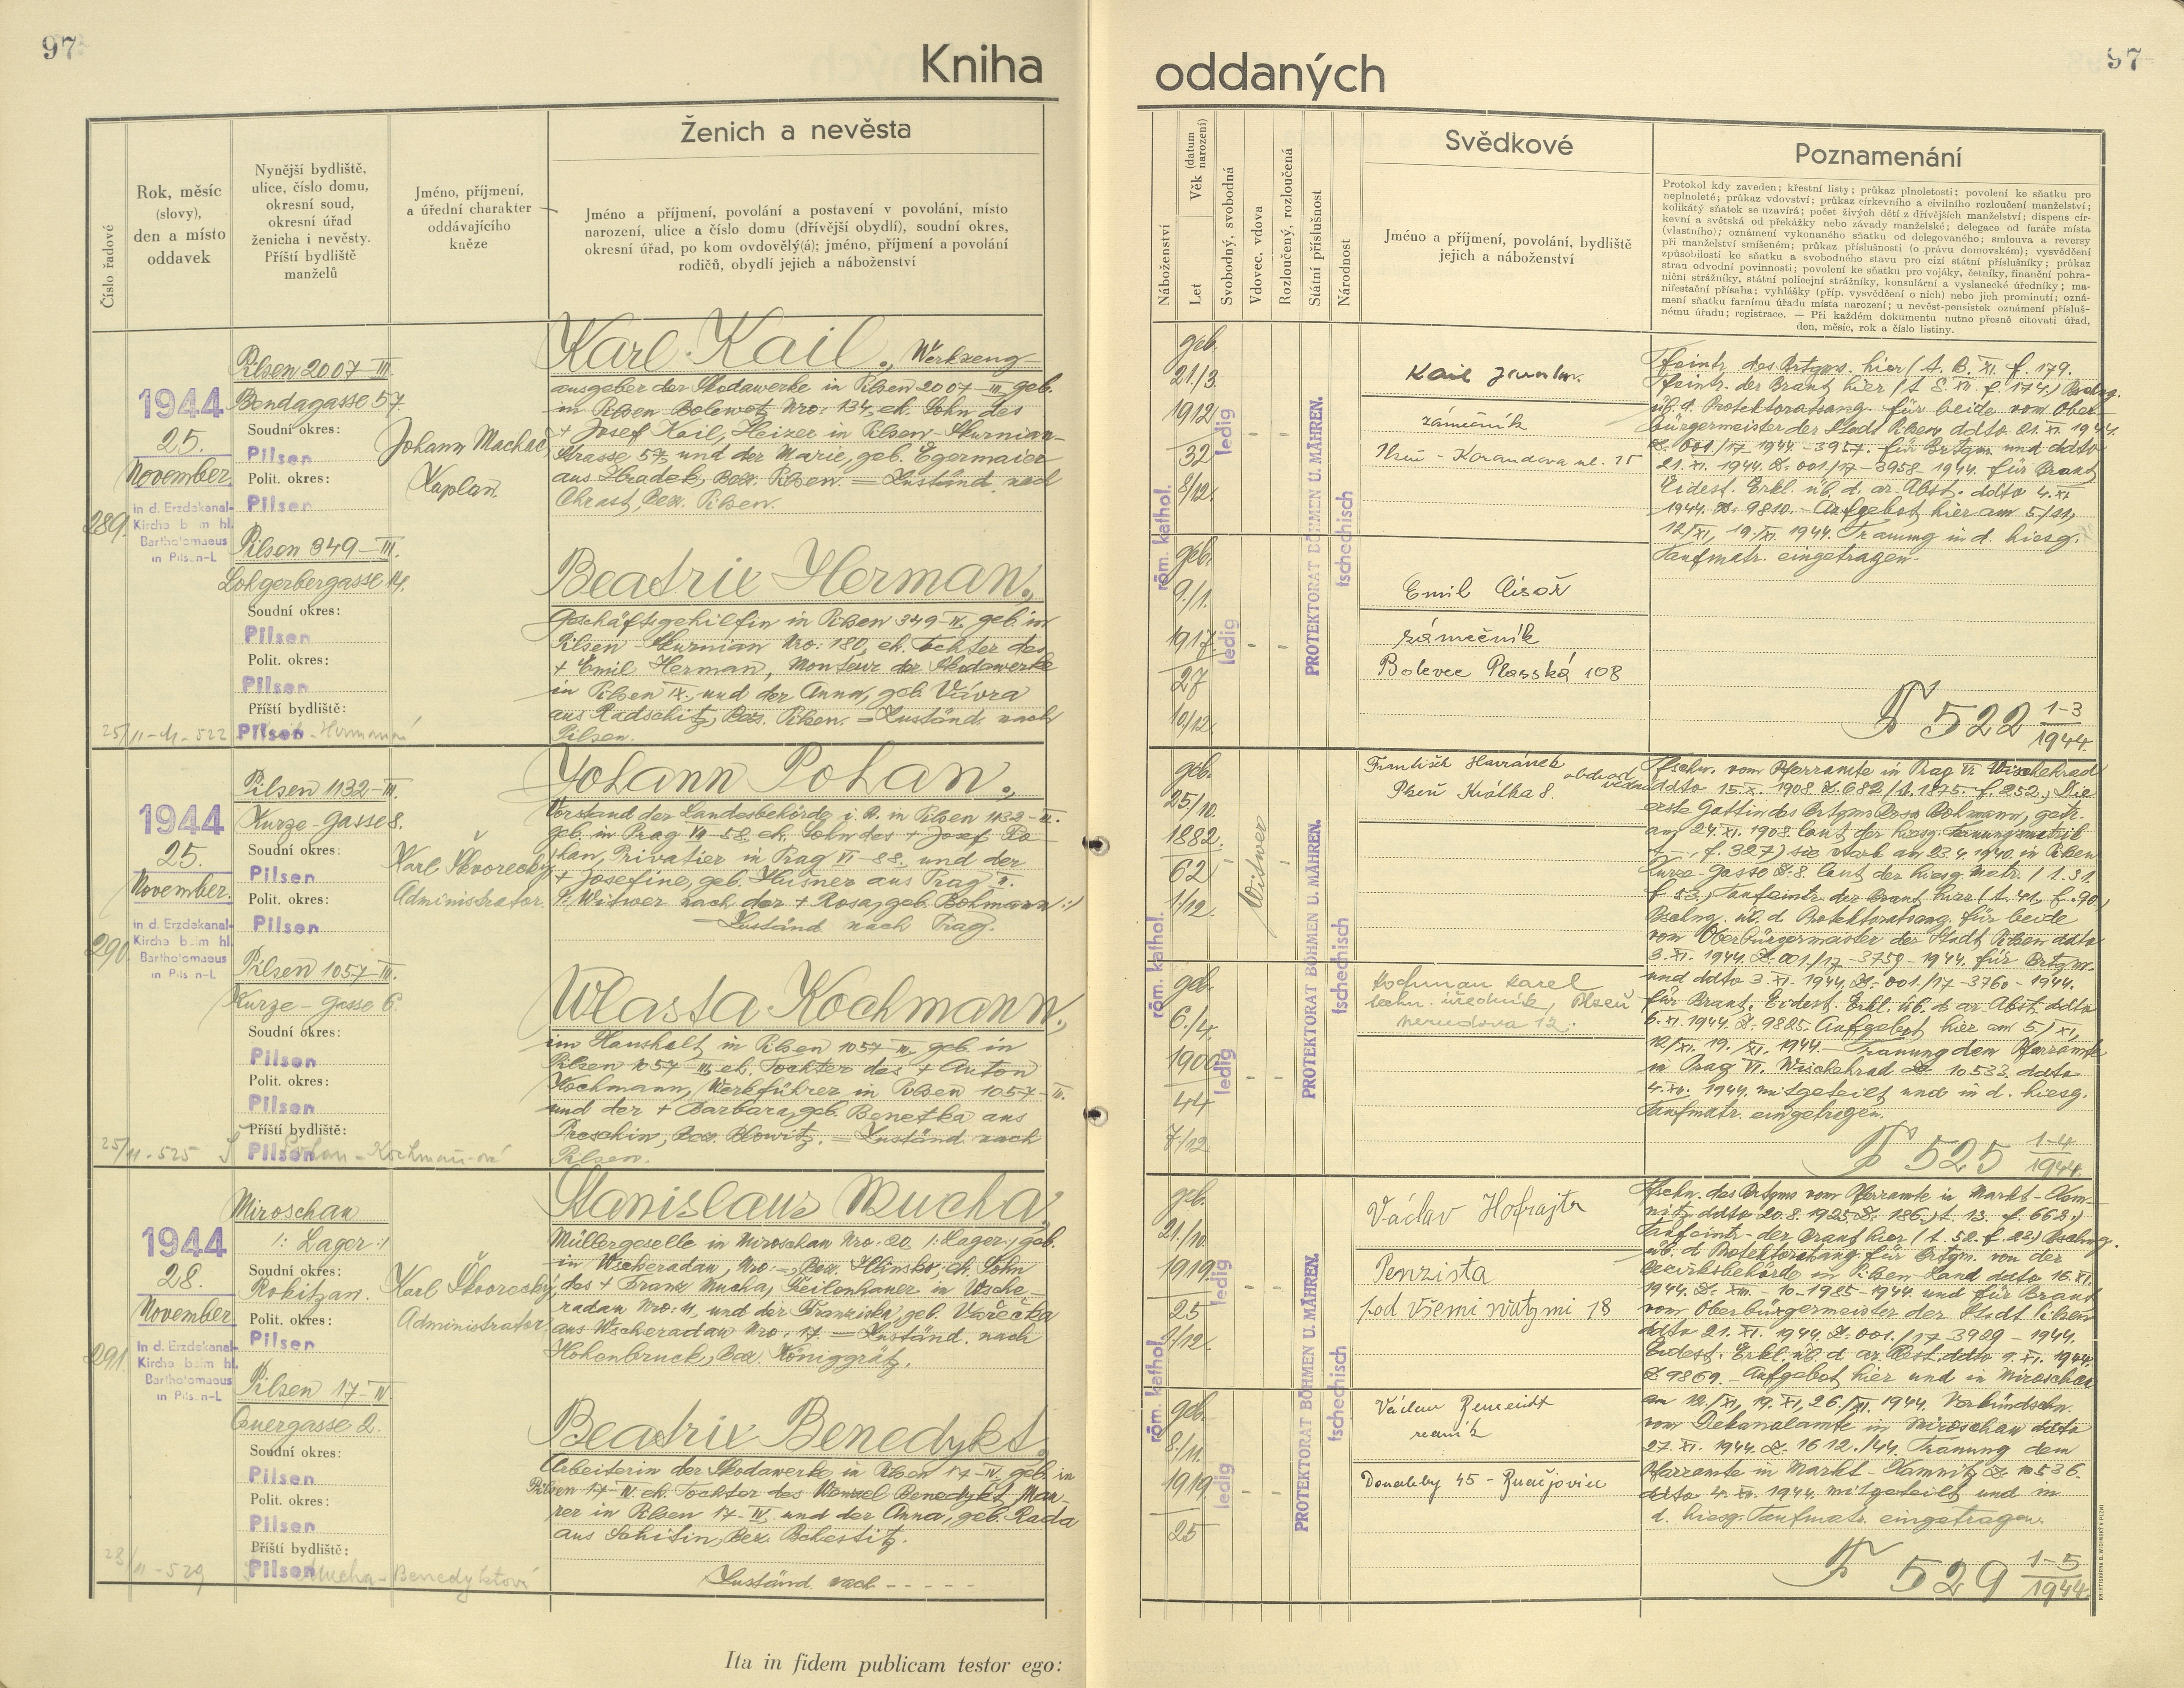 97
Kniha
oddaných
97
Číslo řadové
Rok, měsíc
(slovy),
den a místo
oddavek
Nynější bydliště,
ulice, číslo domu,
okresní soud,
okresní úřad
ženicha i nevěsty.
Příští bydliště
manželů
Jméno, příjmení,
a úřední charakter
oddávajícího
kněze
Ženich a nevěsta
Jméno a příjmení, povolání a postavení v povolání, místo
narození, ulice a číslo domu (dřívější obydlí), soudní okres,
okresní úřad, po kom ovdovělý(á); jméno, příjmení a povolání
rodičů, obydlí jejich a náboženství
Náboženství
Věk (datum narození)
Let
Svobodný, svobodná
Vdovec, vdova
Rozloučený, rozloučená
Státní příslušnost
Národnost
Svědkové
Jméno a příjmení, povolání, bydliště
jejich a náboženství
Poznamenání
Protokol kdy zaveden; křestní listy; průkaz plnoletosti; povolení ke sňatku pro
neplnoleté; průkaz vdovství; průkaz církevního a civilního rozloučení manželství;
kolikátý sňatek se uzavírá; počet živých dětí z dřívějších manželství; dispens cír-
kevní a světská od překážky nebo závady manželské; delegace od faráře místa
(vlastního); oznámení vykonaného sňatku od delegovaného; smlouva a reversy
při manželství smíšeném; průkaz příslušnosti (o právu domovském); vysvědčení
způsobilosti ke sňatku a svobodného stavu pro cizí státní příslušníky; průkaz
stran odvodní povinnosti; povolení ke sňatku pro vojáky, četníky, finanční pohra-
niční strážníky, státní policejní strážníky, konsulární a vyslanecké úředníky; ma-
nifestační přísaha; vyhlášky (příp. vysvědčení o nich) nebo jich prominutí; ozná-
mení sňatku farnímu úřadu místa narození; u nevěst-pensistek oznámení přísluš-
nému úřadu; registrace. — Při každém dokumentu nutno přesně citovati úřad,
den, měsíc, rok a číslo listiny.
289.
1944
25.
November.
in d. Erzdekanal-
Kirche beim hl.
Bartholomaeus
in Pilsen-L
Pilsen 2007-III.
Bendagasse 57.
Soudní okres:
Pilsen
Polit. okres:
Pilsen
Pilsen 349-III.
Lohgerbergasse 14.
Soudní okres:
Pilsen
Polit. okres:
Pilsen
Příští bydliště:
Pilsen
Johann Machač
Kaplan.
Karl Kail., Werkzeug-
ausgeber der Skodawerke in Pilsen 2007-III, geb.
in Pilsen-Bolewetz Nro: 134, eh. Sohn des
+ Josef Kail, Heizer in Pilsen-Skurnian-
Strasse 57, und der Marie, geb. Egermaier
aus Hradek, Bez. Pilsen. = Zuständ. nach
Chrast, Bez. Pilsen.
Beatrix Herman.,
Geschäftsgehilfin in Pilsen 349-III, geb. in
Pilsen-Skurnian Nro: 180, eh. Tochter des
+ Emil Herman, Monteur der Skodawerke
in Pilsen IX., und der Anna, geb. Vávra
aus Radschitz, Bez. Pilsen. = Zuständ. nach
Pilsen.
röm. kathol.
geb.
21./3.
1912
32
8/12.
ledig
geb.
9./1.
1917.
27
10/12.
ledig
PROTEKTORAT BÖHMEN U. MÄHREN.
tschechisch
Kail
zámečník
Plzeň - Korandova ul. 15
Emil Císař
zámečník
Bolevec Plasská 108
Tfeintr. des Brtgms. hier (t. B. XI. f. 179.
Tfeintr. der Braut hier (t. S. XII. f. 174.) Bschng.
üb. d. Protektoratsang. für beide vom Ober-
bürgermeister der Stadt Pilsen ddto 21. XI. 1944.
Z. 001./17 1944.-3957. für Brtgm. und ddto
21. XI. 1944. Z. 001/17-3958-1944. für Braut
Eidest. Erkl. üb. d. ar. Abst. ddto 4. XI.
1944. Z. 9810. - Aufgebot hier am 5/11,
12/XI, 19./XI. 1944. Trauung in d. hiesg.
Taufmatr. eingetragen.
F 522 1-3/1944.
25/11-44-522
290.
1944
25.
November.
in d. Erzdekanal-
Kirche beim hl.
Bartholomaeus
in Pilsen-L
Pilsen 1132-III.
Kurze-gasse 8.
Soudní okres:
Pilsen
Polit. okres:
Pilsen
Pilsen 1057-III.
Kurze-gasse 6.
Soudní okres:
Pilsen
Polit. okres:
Pilsen
Příští bydliště:
Pilsen
Karl Škvorecký,
Administrator.
Johann Pohan.,
Vorstand der Landesbehörde i. R. in Pilsen 1132-III.
geb. in Prag VI-58. eh. Sohn des + Josef Po-
han, Privatier in Prag VI-88. und der
+ Josefine, geb. Husner aus Prag II.
/: Witwer nach der + Rosa, geb. Bohmann :/
Zuständ. nach Prag.
Wlasta Kochmann.,
im Haushalt in Pilsen 1057-III, geb. in
Pilsen 1057-III, eh. Tochter des + Anton
Kochmann, Werkführer in Pilsen 1057-III.
und der + Barbara, geb. Benetka aus
Preschin, Bez. Blowitz. = Zuständ. nach
Pilsen.
röm. kathol.
geb.
25/10.
1882.
62
1/12.
Witwer
geb.
6./4.
1900
44
7/12.
ledig
PROTEKTORAT BÖHMEN U. MÄHREN.
tschechisch
František Havránek
Plzeň Krátká 8.
Kochman Karel
techn. úředník, Plzeň
Nerudova 12.
Tfschn. vom Pfarramte in Prag VI. Wischehrad
ddto 15. X. 1908. Z. 682./t. 1875. f. 252.) Die
erste Gattin des Brtgms Rosa Bohmann, getr.
am 24. XI. 1908. laut der hiesg. Trauungsmatrik
t -, f. 327) sie starb am 23. 4. 1940. in Pilsen
Kurze-gasse Z. 8. laut der hiesg. matr. / t. 31.
f. 53.) Taufeintr. der Braut hier (t. 41, f. 90.)
Bschng. üb. d. Protektoratsang. für beide
vom Oberbürgermeister der Stadt Pilsen ddto
3. XI. 1944. Z. 001./17-3759-1944. für Brtgm.
und ddto 3. XI. 1944, Z. 001./17-3760-1944.
für Braut, Eidest. Erkl. üb. d. ar. Abst. ddto
6. XI. 1944. Z. 9825. Aufgebot hier am 5/XI,
12/XI. 19./XI. 1944. - Trauung dem Pfarramte
in Prag VI. Wischehrad Z. 10533. ddto
4. XII. 1944. mitgeteilt und in d. hiesg.
Taufmatr. eingetragen.
F 525 1-4/1944.
25/11-525 Pohan-Kochmannová
291.
1944
28.
November
in d. Erzdekanal-
Kirche beim hl.
Bartholomaeus
in Pilsen-L
Miroschau
/: Lager :/
Soudní okres:
Rokitzan.
Polit. okres:
Pilsen
Pilsen 17-IV
Quergasse 2.
Soudní okres:
Pilsen
Polit. okres:
Pilsen
Příští bydliště:
Pilsen
Karl Škvorecký,
Administrator.
Stanislaus Mucha,
Müllergeselle in Miroschau Nro. 20 /: Lager :/, geb.
in Wscheradau, Nro: -, Bez. Hlinsko, eh. Sohn
des + Franz Mucha, Feilenhauer in Wsche-
radau Nro: 4, und der Franziska, geb. Vařečka
aus Wscheradau Nro. 17. = Zuständ. nach
Hohenbruck, Bez. Königgrätz.
Beatrix Benedykt,
Arbeiterin der Skodawerke in Pilsen 17-IV. geb. in
Pilsen 17-IV. eh. Tochter des Wenzel Benedykt, Mau-
rer in Pilsen 17-IV, und der Anna, geb. Rada
aus Sohitin, Bez. Pchestitz.
Zuständ. nach -----
röm. kathol.
geb.
21./10.
1919
25
9/12.
ledig
geb.
8./11.
1919
25
ledig
PROTEKTORAT BÖHMEN U. MÄHREN.
tschechisch
Václav Hofrajtr
Penzista
pod Všemi svatými 18
Václav Benedikt
rolník
Doudleby 45
Tfschn. des Brtgms vom Pfarramte in Markt-Kam-
nitz ddto 20. 8. 1925. Z. 186.) t. 13. f. 662.)
Taufeintr. der Braut hier (t. 52. f. 22.) Bschng.
üb. d. Protektoratsang. für Brtgm. von der
Bezirksbehörde in Pilsen-Land ddto 16. XI.
1944. Z. XIII.-10-1925-1944. und für Braut
vom Oberbürgermeister der Stadt Pilsen
ddto 21. XI. 1944. Z. 001./17-3929-1944.
Eidest. Erkl. üb. d. ar. Abst. ddto 9. XI. 1944
Z. 9869. - Aufgebot hier und in Miroschau
am 12./XI, 19. XI, 26./XI. 1944. Verkündschn.
vom Dekanalamte in Miroschau ddto
27. XI. 1944. Z. 1612./44. Trauung dem
Pfarramte in Markt-Kamnitz Z. 10536.
ddto 4. XII. 1944. mitgeteilt und in
d. hiesg. Taufmatr. eingetragen.
F 529 1-5/1944.
28/11-529 Mucha-Benedyktová
Ita in fidem publicam testor ego: